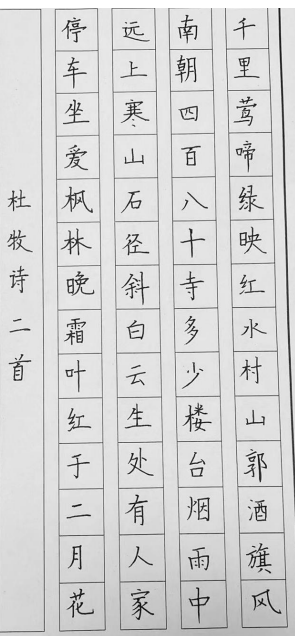 千里莺啼绿映红水村山郭酒旗风
南朝四百八十寺多少楼台烟雨中
远上寒山石径斜白云生处有人家
停车坐爱枫林晚霜叶红于二月花
杜牧诗二首